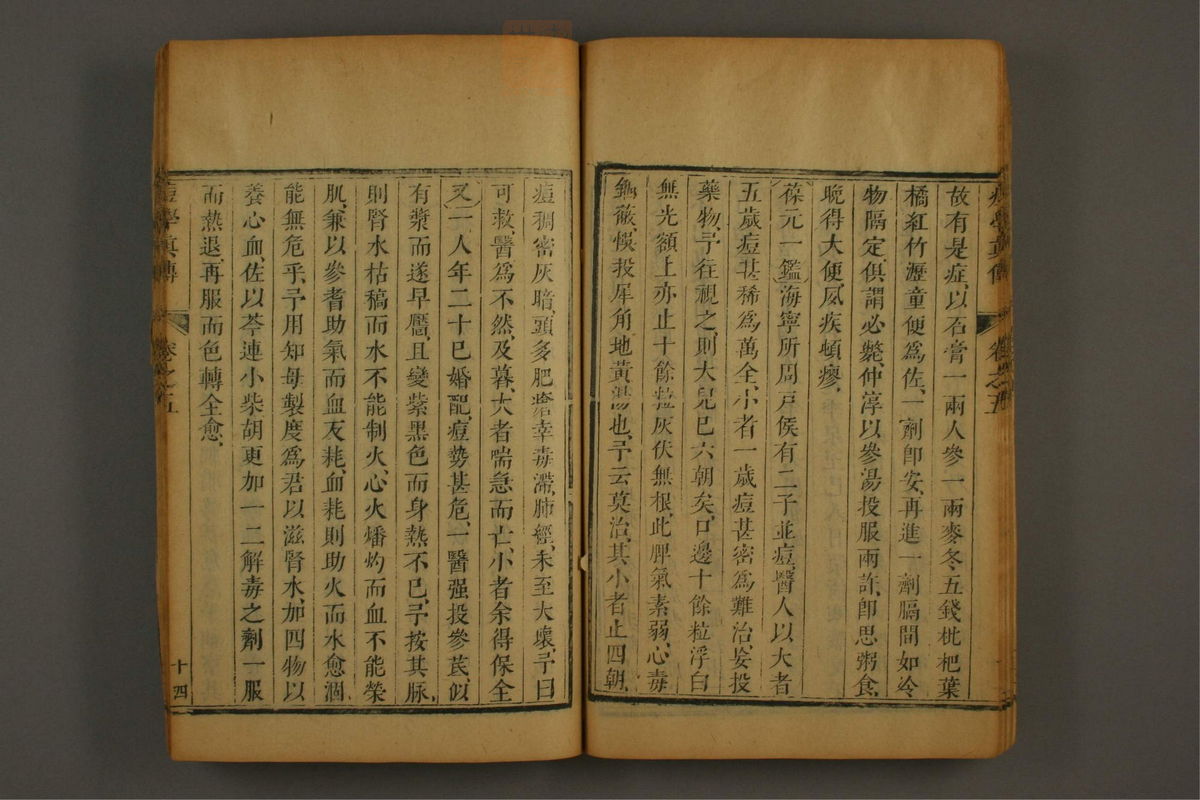 故有是症、以石膏一兩人參一兩麥冬五錢枇杷葉
橘紅竹瀝童便爲佐、一劑卽安、再進一劑膈間如冷
物隔定、俱謂必斃、仲淳以參湯投服兩許、卽思粥食、
晩得大便、風疾頓瘳、
葆元一鑑海寧所周戸侯有二子並痘、醫人以大者
五歲痘甚稀爲萬全、小者一歲痘甚密爲難治、妄投
藥物、予往視之、則大兒巳六朝矣、口邊十餘粒浮白
無光額上亦止十餘粒灰伏無根、此脾氣素弱、心毒
悞投犀角地黃湯也、予云莫治、其小者止四朝、
痘稠密灰暗、頭多肥瘡幸毒滯肺經、未至大壞、予曰
可救、醫爲不然、及暮、大者喘急而亡、小者余得保全
又一人年二十巳婚配、痘勢甚危、一醫强投參芪、似
有漿而遂早靨、且變紫黑色而身熱不巳、予按其脉、
則腎水枯稿而水不能制火、心火燔灼而血不能榮
肌、兼以參耆助氣而血反耗、血耗則助火而水愈涸
能無危乎、予用知母製度爲君以滋腎水、加四物以
養心血、佐以芩連小柴胡更加一二解毒之劑一服
而熱退、再服而色轉全愈、
痘學眞傳
卷之五
十四